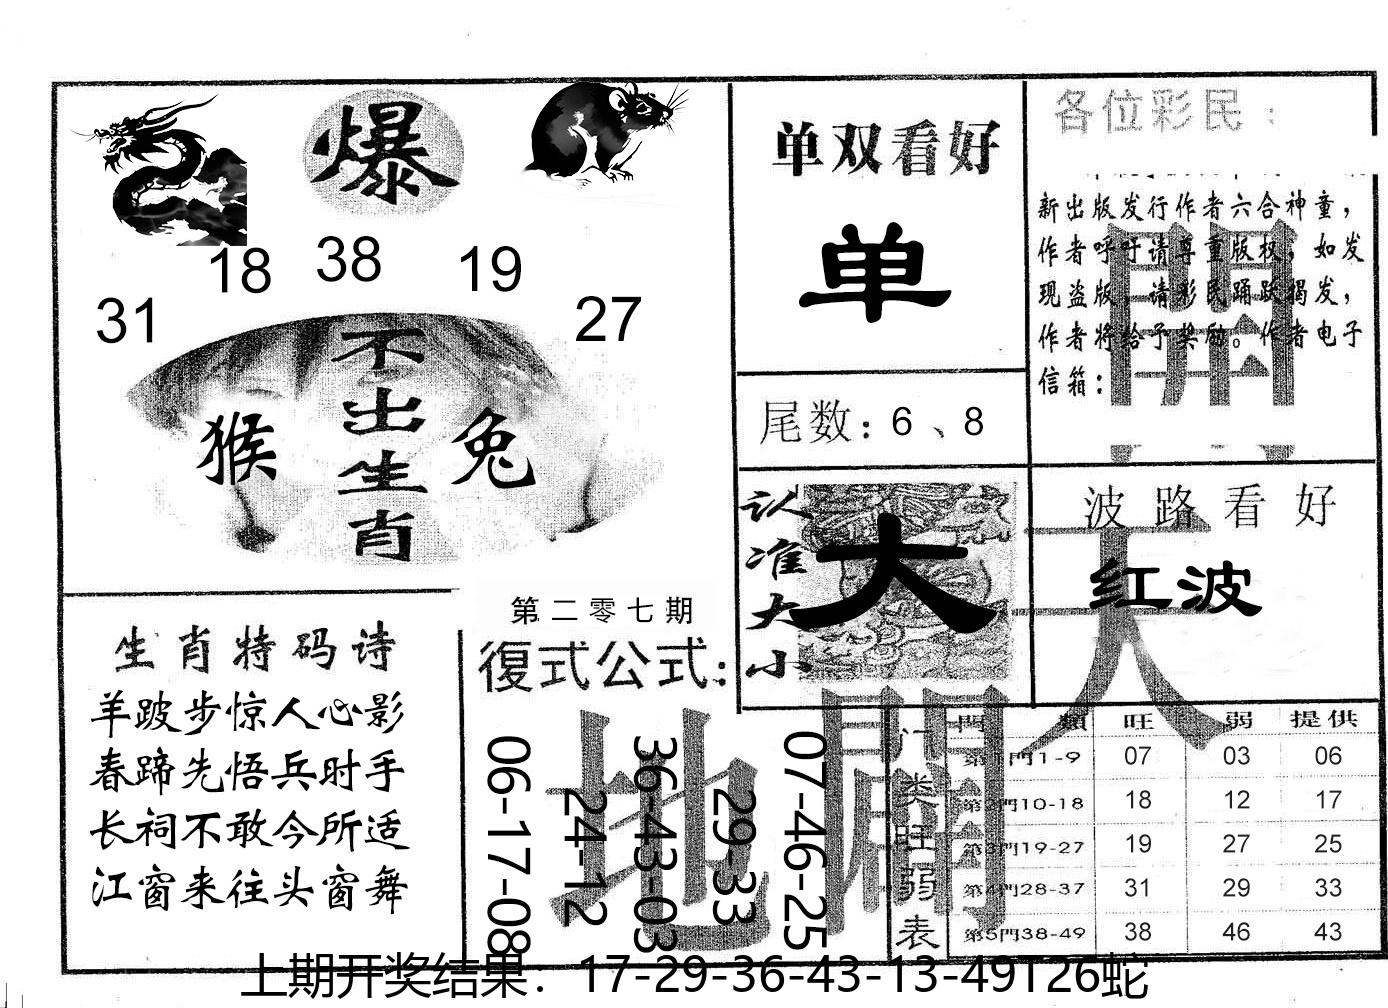 爆
18 38 19
31 27
不出生肖
猴 兔
单双看好
单
尾数：6、8
各位彩民：
新出版发行作者六合神童，
作者呼吁请尊重版权，如发
现盗版，请彩民踊跃揭发，
作者将给予奖励。作者电子
信箱：
認准大小
大
波路看好
红波
開
天
地
開
生肖特码诗
羊跛步惊人心影
春蹄先悟兵时手
长祠不敢今所适
江窗来往头窗舞
第二零七期
復式公式：
06-17-08
24-12
36-43-03
29-33
07-46-25
门类旺弱表
門類 旺 弱 提供
第1門1-9 07 03 06
第2門10-18 18 12 17
第3門19-27 19 27 25
第4門28-37 31 29 33
第5門38-49 38 46 43
上期开奖结果：17-29-36-43-13-49T26蛇